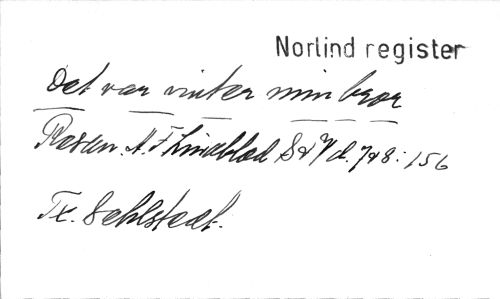 Norlind register
Det var vinter min bror
Rosén. A. F Lindblad Sv d. 728:156
Tx. Sehlstedt.